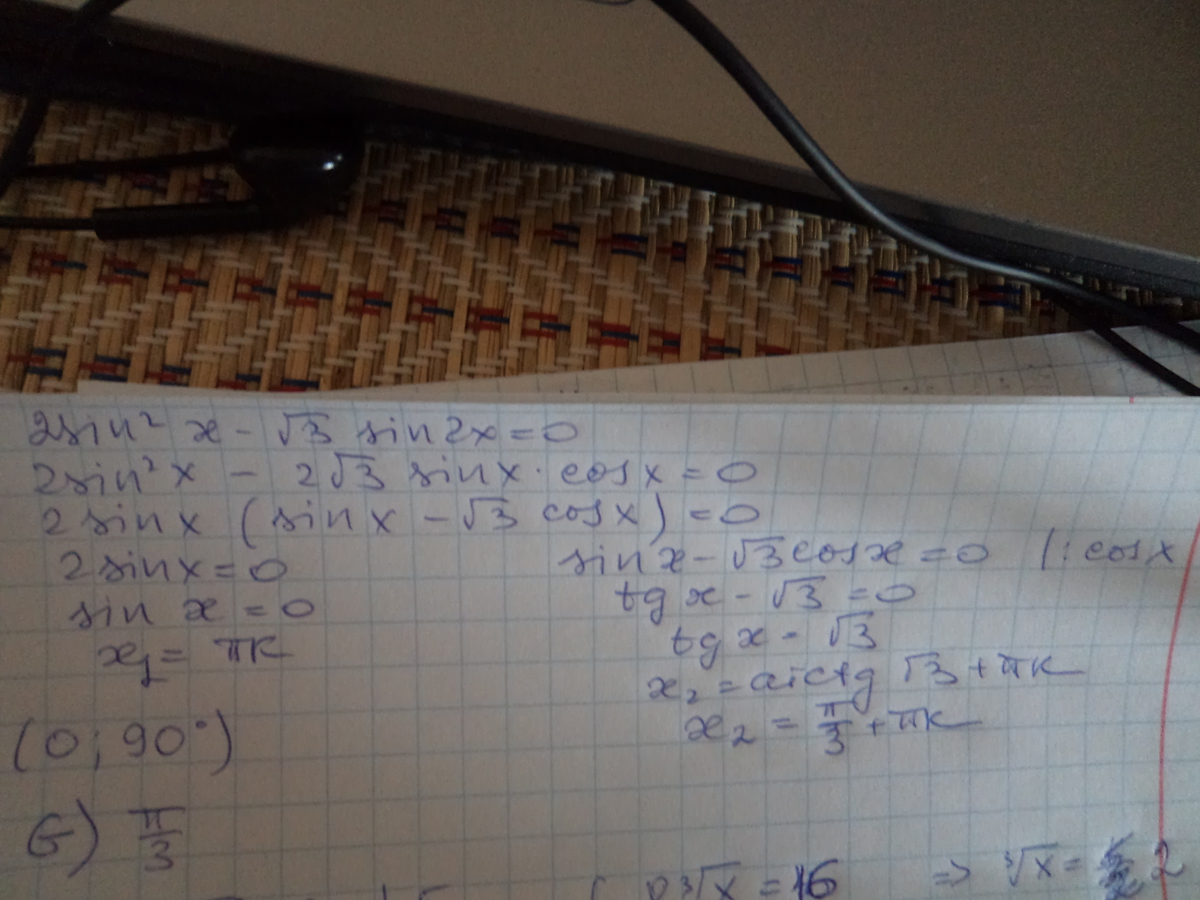 2sin² x - √3 sin2x = 0
2sin²x - 2√3 sinx · cosx = 0
2 sinx (sinx - √3 cosx) = 0
2sinx = 0
sin x = 0
x₁ = πk
sinx - √3cosx = 0 (: cosx
tg x - √3 = 0
tg x - √3
x₂ = arctg √3 + πk
x₂ = π/3 + πk
(0; 90°)
G) π/3
∛x = 16 => ∛x = 2